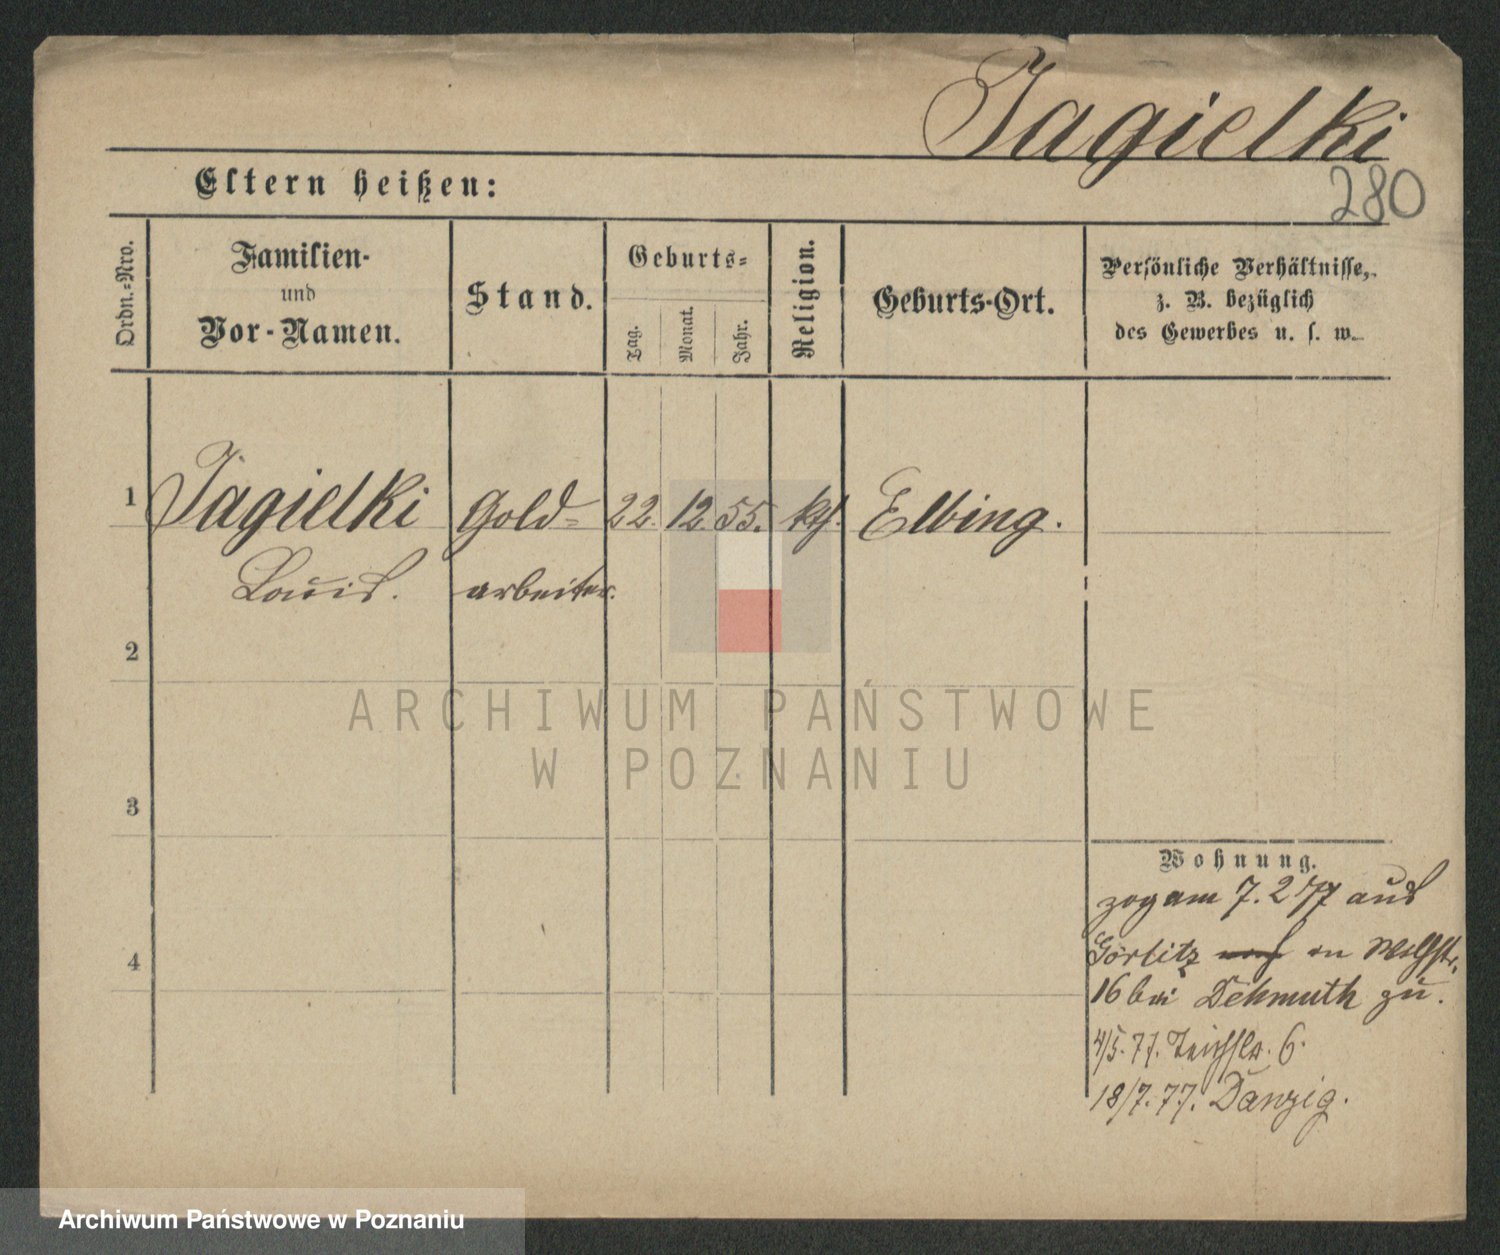 Jagielki
280
Eltern heißen:
Ordn.-Nro.
Familien-
und
Vor-Namen.
Stand.
Geburts-
Tag.
Monat.
Jahr.
Religion.
Geburts-Ort.
Persönliche Verhältnisse,
z. B. bezüglich
des Gewerbes u. s. w.
1
Jagielki Gold- 22. 12. 55. kth. Elbing.
Louis. arbeiter.
2
3
4
Wohnung.
zog am 7. 2 77 aus
Görlitz in
16 bei Dehmuth zu.
4/5. 77. Teichstr. 6.
18/7. 77. Danzig.
ARCHIWUM PAŃSTWOWE
W POZNANIU
Archiwum Państwowe w Poznaniu